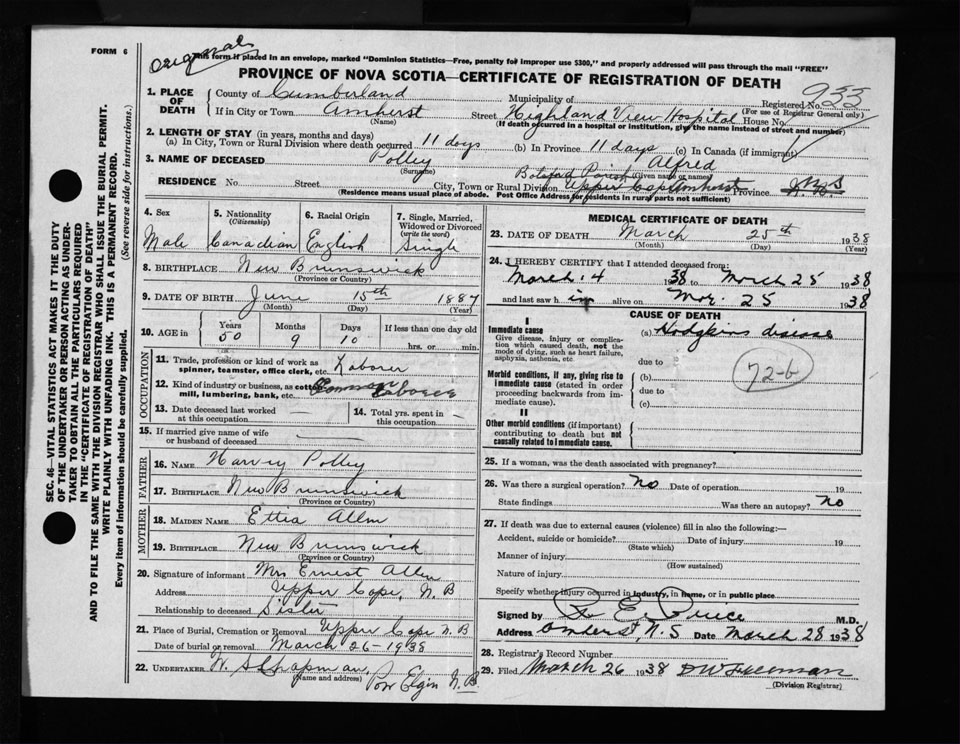 FORM 6
Originals
This form if placed in an envelope, marked "Dominion Statistics—Free, penalty for improper use $300," and properly addressed will pass through the mail "FREE"
PROVINCE OF NOVA SCOTIA—CERTIFICATE OF REGISTRATION OF DEATH
1. PLACE OF DEATH County of Cumberland Municipality of Registered No. 933
(For use of Registrar General only)
If in City or Town Amherst Street Highland View Hospital House No.
(Name) (If death occurred in a hospital or institution, give the name instead of street and number)
2. LENGTH OF STAY (in years, months and days)
(a) In City, Town or Rural Division where death occurred 11 days (b) In Province 11 days (c) In Canada (if immigrant)
3. NAME OF DECEASED Polley Alfred
(Surname) (Given name or names)
Botsford Parish
RESIDENCE No. Street City, Town or Rural Division Upper Cape Amherst Province
(Residence means usual place of abode. Post Office Address for residents in rural parts not sufficient)
SEC. 46—VITAL STATISTICS ACT MAKES IT THE DUTY
OF THE UNDERTAKER OR PERSON ACTING AS UNDER-
TAKER TO OBTAIN ALL THE PARTICULARS REQUIRED
IN THE "CERTIFICATE OF REGISTRATION OF DEATH"
AND TO FILE THE SAME WITH THE DIVISION REGISTRAR WHO SHALL ISSUE THE BURIAL PERMIT.
WRITE PLAINLY WITH UNFADING INK. THIS IS A PERMANENT RECORD.
Every item of information should be carefully supplied. (See reverse side for Instructions.)
4. Sex
Male
5. Nationality
(Citizenship)
Canadian
6. Racial Origin
English
7. Single, Married,
Widowed or Divorced
(write the word)
Single
8. BIRTHPLACE New Brunswick
(Province or Country)
9. DATE OF BIRTH June 15th 1887
(Month) (Day) (Year)
10. AGE in Years Months Days If less than one day old
50 9 10 hrs. or min.
OCCUPATION
11. Trade, profession or kind of work as
spinner, teamster, office clerk, etc. Laborer
12. Kind of industry or business, as cotton
mill, lumbering, bank, etc. Common Laborer
13. Date deceased last worked
at this occupation
14. Total yrs. spent in
this occupation
15. If married give name of wife
or husband of deceased
FATHER
16. NAME Harvey Polley
17. BIRTHPLACE New Brunswick
(Province or Country)
MOTHER
18. MAIDEN NAME Etta Allen
19. BIRTHPLACE New Brunswick
(Province or Country)
20. Signature of informant Mrs Ernest Allen
Address Upper Cape, N B
Relationship to deceased Sister
21. Place of Burial, Cremation or Removal Upper Cape N. B
Date of burial or removal March 26 - 1938
22. UNDERTAKER W. S Chapman,
(Name and address) Port Elgin N. B
MEDICAL CERTIFICATE OF DEATH
23. DATE OF DEATH March 25th 1938
(Month) (Day) (Year)
24. I HEREBY CERTIFY that I attended deceased from:
March 4 1938 to March 25 1938
and last saw him alive on Mar. 25 1938
CAUSE OF DEATH
I
Immediate cause
Give disease, injury or complica-
tion which caused death, not the
mode of dying, such as heart failure,
asphyxia, asthenia, etc.
(a) Hodgkins disease
due to
Morbid conditions, if any, giving rise to
immediate cause (stated in order
proceeding backwards from im-
mediate cause).
(b)
due to
(c)
72-b
II
Other morbid conditions (if important)
contributing to death but not
causally related to immediate cause.
25. If a woman, was the death associated with pregnancy?
26. Was there a surgical operation? No Date of operation 19
State findings Was there an autopsy? No
27. If death was due to external causes (violence) fill in also the following:—
Accident, suicide or homicide? Date of injury 19
(State which)
Manner of injury
(How sustained)
Nature of injury
Specify whether injury occurred in industry, in home, or in public place
Signed by M.D.
Address Amherst, N. S Date March 28 1938
28. Registrar's Record Number
29. Filed March 26 1938 D W Freeman
(Division Registrar)